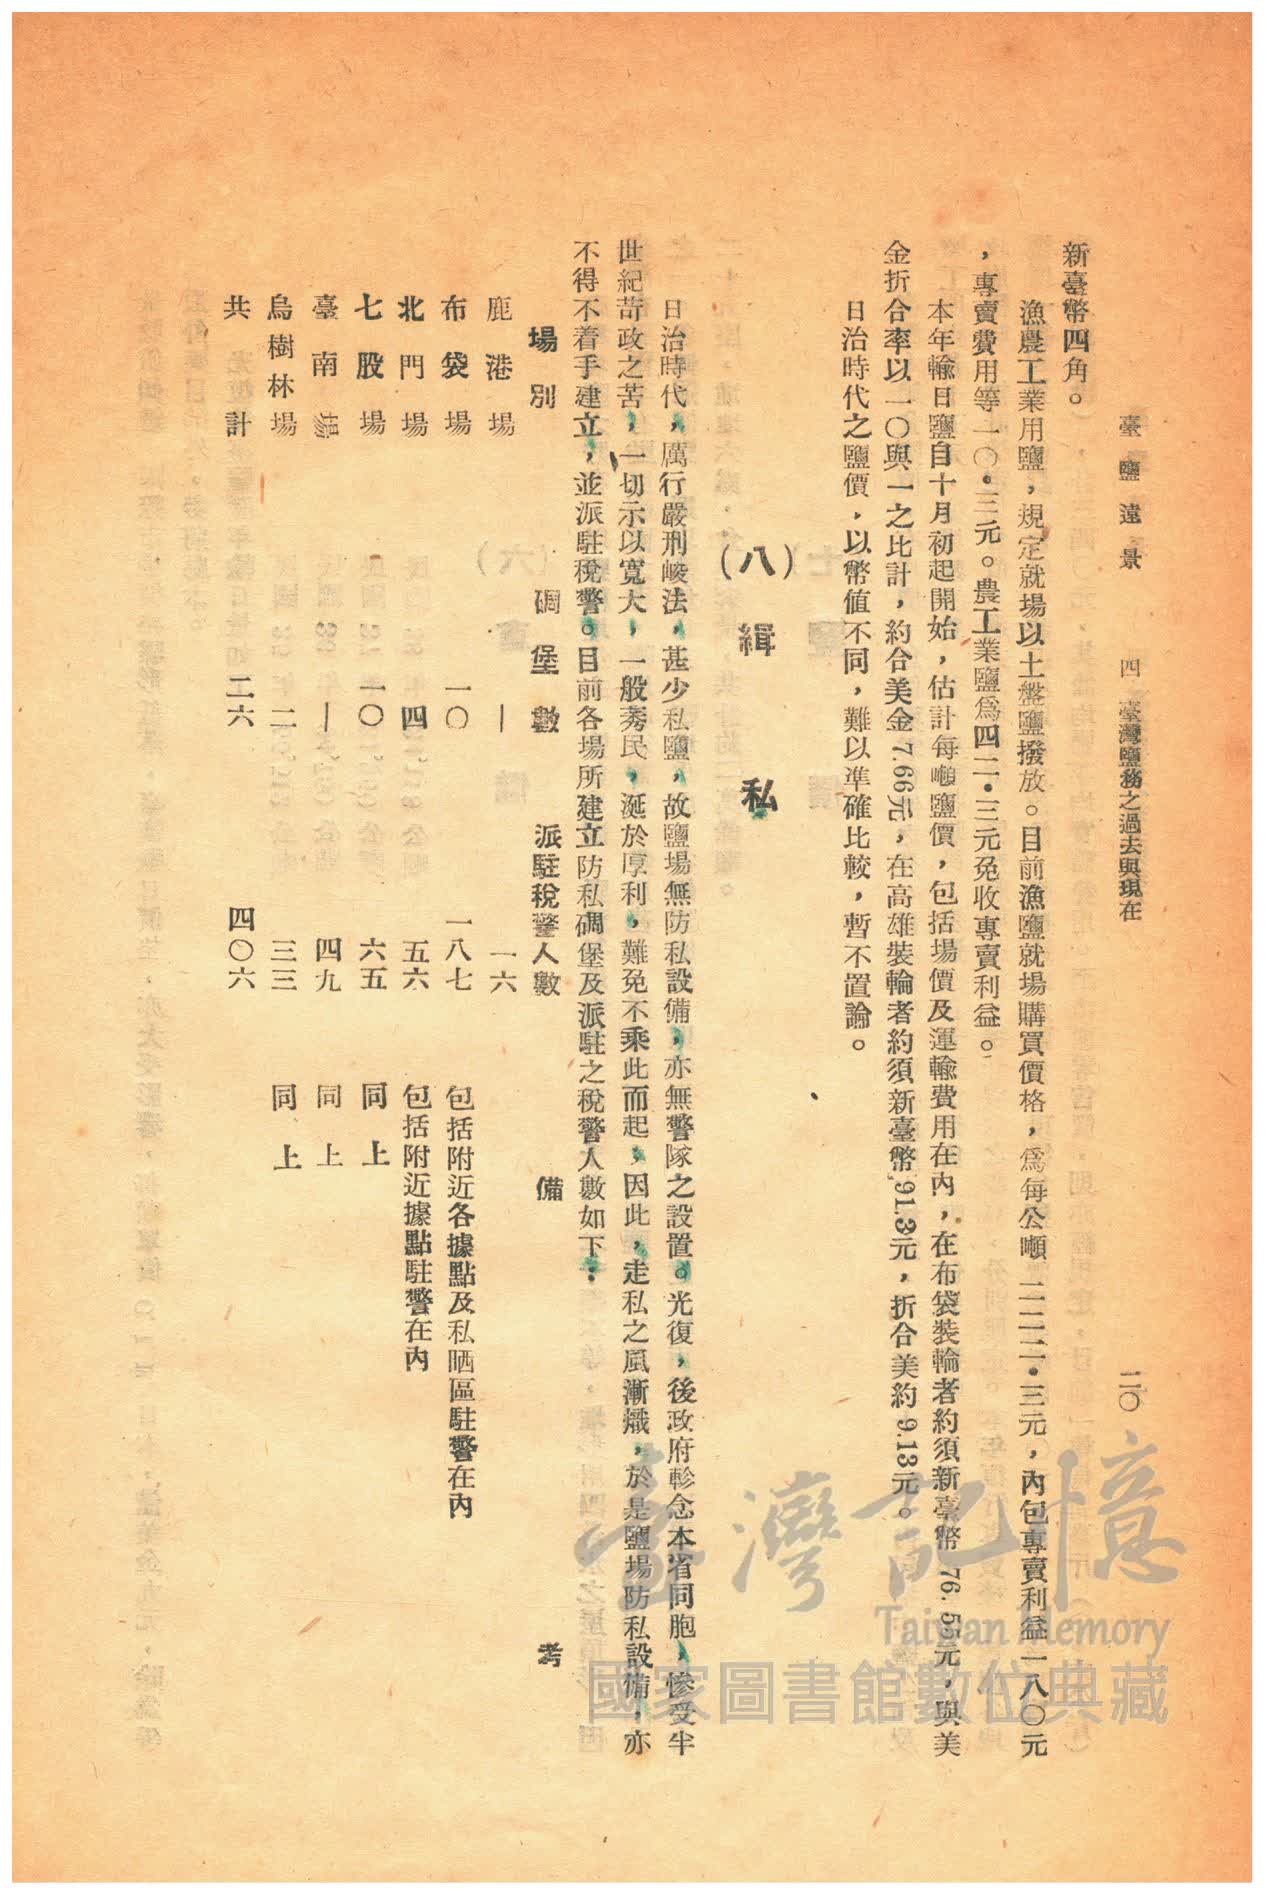 臺鹽遠景　四　臺灣鹽務之過去與現在　二〇
新臺幣四角。
漁農工業用鹽，規定就場以土盤鹽撥放。目前漁鹽就場購買價格，爲每公噸二二二•三元，內包專賣利益一八〇元
，專賣費用等一〇•三元。農工業鹽爲四二•三元免收專賣利益。
本年輸日鹽自十月初起開始，估計每噸鹽價，包括場價及運輸費用在內，在布袋裝輪者約須新臺幣76.55元，與美
金折合率以一〇與一之比計，約合美金7.66元，在高雄裝輪者約須新臺幣91.3元，折合美約9.13元。
日治時代之鹽價，以幣值不同，難以準確比較，暫不置論。
（八）緝私
日治時代，厲行嚴刑峻法，甚少私鹽，故鹽場無防私設備，亦無警隊之設置。光復，後政府軫念本省同胞，慘受半
世紀苛政之苦，一切示以寬大，一般莠民，涎於厚利，難免不乘此而起，因此，走私之風漸熾，於是鹽場防私設備，亦
不得不着手建立，並派駐稅警。目前各場所建立防私碉堡及派駐之稅警人數如下：
場別　碉堡數　派駐稅警人數　備考
鹿港場　—　一六
布袋場　一〇　一八七　包括附近各據點及私晒區駐警在內
北門場　四　五六　包括附近據點駐警在內
七股場　一〇　六五　同上
臺南場　—　四九　同上
烏樹林場　二　三三　同上
共計　二六　四〇六
臺灣記憶
Taiwan Memory
國家圖書館數位典藏